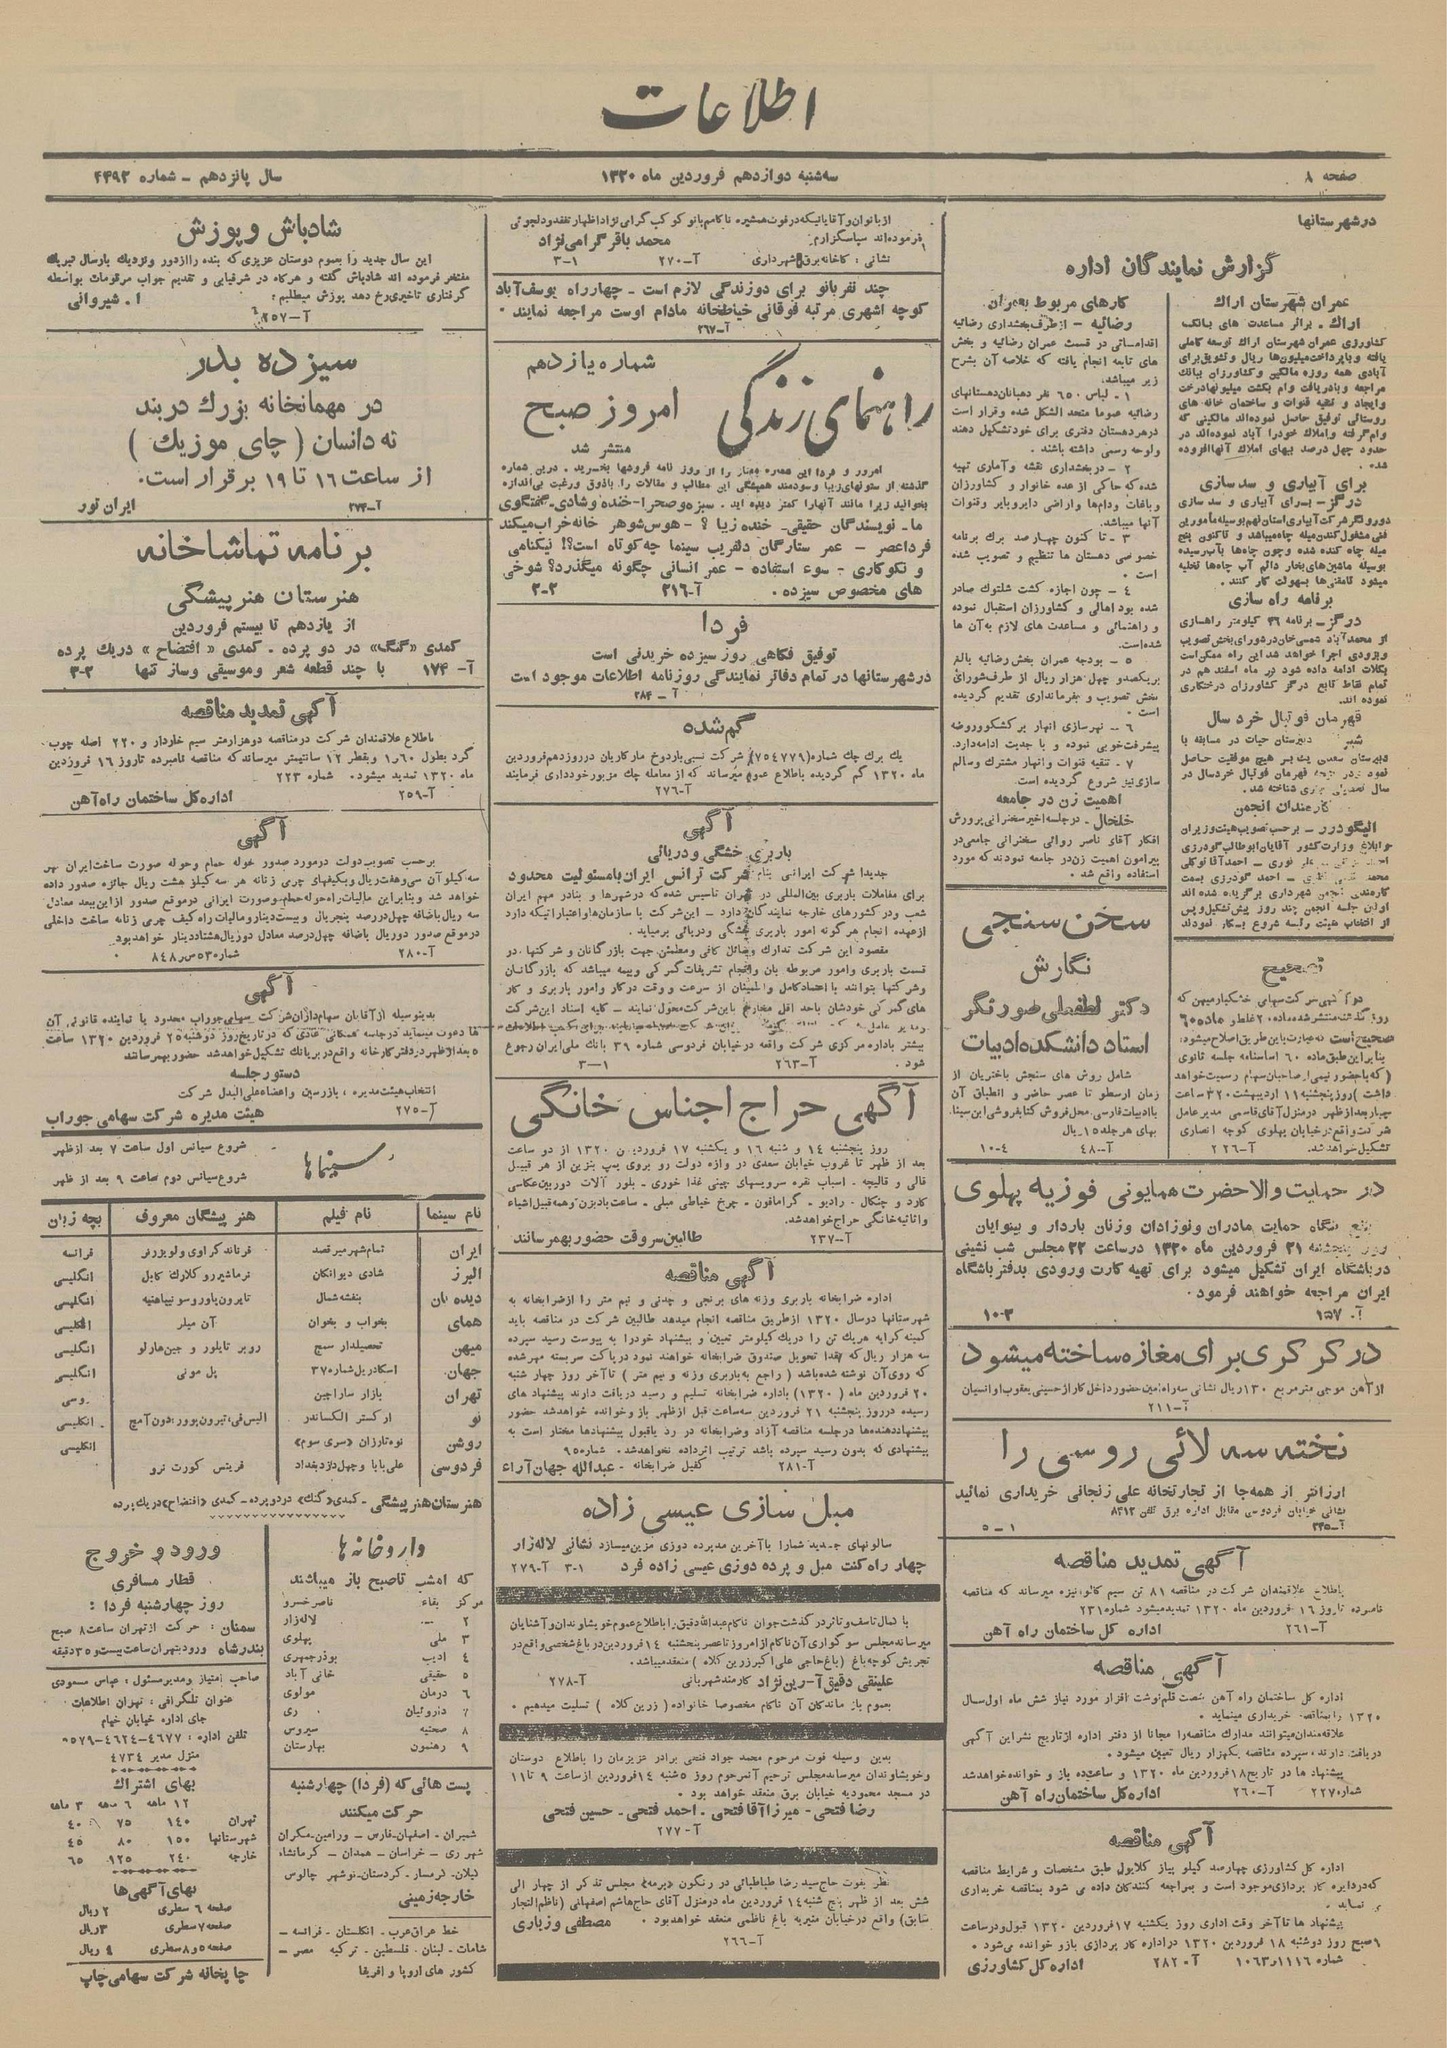 اطلاعات
صفحه ۸
سه‌شنبه دوازدهم فروردین ماه ۱۳۲۰
سال پانزدهم - شماره ۴۴۹۲
درشهرستانها
گزارش نمایندگان اداره
عمران شهرستان اراك
اراك . براثر مساعدت های بانك
کشاورزی عمران شهرستان اراك توسعه کاملی
یافته و با پرداخت میلیون‌ها ریال و تشویق برای
آبادی همه روزه مالکین و کشاورزان ببانك
مراجعه و بادریافت وام بکشت میلیونهادرخت
وایجاد و تنقیه قنوات و ساختمان خانه های
روستائی توفیق حاصل نموده‌اند مالکینی که
وام گرفته و املاك خودرا آباد نموده‌اند در
حدود چهل درصد ببهای املاك آنها افزوده
شده .
برای آبیاری و سدسازی
درگز - برای آبیاری و سد سازی
فنی مشغول کندن میله چاه میباشد و تاکنون پنج
میله چاه کنده شده و چون چاه‌ها بآب رسیده
بوسیله ماشین‌های بخار دائم آب چاه‌ها تخلیه
میشود تامقنی‌ها بسهولت کار کنند .
برنامه راه سازی
درگز - برنامه ۳۶ کیلومتر راهسازی
از محمدآباد شمسی‌خان درشورای بخش تصویب
وبزودی اجرا خواهد شد این راه ممکن است
بکلات ادامه داده شود در ماه اسفند هم در
تمام نقاط تابع درگز کشاورزان درختکاری
نموده اند.
قهرمان فوتبال خرد سال
دبیرستان حیات در مسابقه با
کارمندان انجمن
الیگودرز - برحسب تصویب هیئت وزیران
اولین جلسه انجمن چند روز پیش تشکیل و پس
از انتخاب هیئت رئیسه شروع بکار نمودند
کارهای مربوط بعمران
رضائیه - ازطرف بخشداری رضائیه
اقداماتی در قسمت عمران رضائیه و بخش
های تابعه انجام یافته که خلاصه آن بشرح
زیر میباشد.
۱ - لباس ۶۵۰ نفر دهبانان دهستانهای
رضائیه عموما متحد الشکل شده و قرار است
درهر دهستان دفتری برای خود تشکیل دهند
ولوحه رسمی داشته باشند .
۲ - در بخشداری نقشه و آماری تهیه
شده که حاکی از عده خانوار و کشاورزان
وباغات ودام‌ها واراضی دایروبایر وقنوات
آنها میباشد .
۳ - تا کنون چهارصد برك برنامه
خصوصی دهستان ها تنظیم و تصویب شده
است .
۴ - چون اجازه کشت شلتوك صادر
شده بود اهالی و کشاورزان استقبال نموده
و راهنمائی و مساعدت های لازم به‌آن ها
شده‌است .
۵ - بودجه عمران بخش رضائیه بالغ
بریکصدو چهل هزار ریال از طرف شورای
بخش تصویب و بفرمانداری تقدیم گردیده
است .
۶ - نهرسازی انهار برکشکوو روضه
پیشرفت خوبی نموده و با جدیت ادامه دارد.
۷ - تنقیه قنوات و انهار مشترك وسالم
سازی نیز شروع گردیده است .
اهمیت زن در جامعه
خلخال - در جلسه اخیر سخنرانی پرورش
افکار آقای ناصر روائی سخنرانی جامعی در
پیرامون اهمیت زن در جامعه نمودند که مورد
استفاده واقع شد .
تصحیح
صحیح است
بنابراین طبق ماده ۶۰ اساسنامه جلسه ثانوی
تشکیل خواهد شد. آ-۲۲۶
سخن سنجی
نگارش
دکتر لطفعلی صورتگر
استاد دانشکده ادبیات
شامل روش های سنجش باختریان از
زمان ارسطو تا عصر حاضر و انطباق آن
با ادبیات فارسی. محل فروش کتابفروشی ابن‌سینا.
بهای هر جلد ۱۵ ریال
آ-۴۸ ۱۰-۴
در حمایت والاحضرت همایونی فوزیه پهلوی
بنگاه حمایت مادران و نوزادان وزنان باردار و بینوایان
۲۱ فروردین ماه ۱۳۲۰ درساعت ۲۲ مجلس شب نشینی
درباشگاه ایران تشکیل میشود برای تهیه کارت ورودی بدفتر باشگاه
ایران مراجعه خواهند فرمود .
آ. ۱۵۷ ۱۰-۳
در کرکری برای مغازه ساخته میشود
آ-۲۱۱
تخته سه لائی روسی را
ارزانتر از همه‌جا از تجارتخانه علی زنجانی خریداری نمائید
نشانی خیابان فردوسی مقابل اداره برق تلفن ۸۳۱۳
۱-۵
آگهی تمدید مناقصه
باطلاع علاقمندان شرکت در مناقصه ۸۱ تن سیم گالوانیزه میرساند که مناقصه
نامبرده تا روز ۱۶ فروردین ماه ۱۳۲۰ تمدید میشود شماره ۲۳۱
آ-۲۶۱ اداره کل ساختمان راه آهن
آگهی مناقصه
اداره کل ساختمان راه آهن شصت قلم نوشت افزار مورد نیاز شش ماه اول سال
۱۳۲۰ را بمناقصه خریداری مینماید .
علاقه‌مندان میتوانند مدارك مناقصه را مجانا از دفتر اداره از تاریخ نشر این آگهی
دریافت دارند، سپرده مناقصه یکهزار ریال تعیین میشود .
پیشنهاد ها در تاریخ ۱۸ فروردین ماه ۱۳۲۰ و ساعت ده باز و خوانده خواهد شد
شماره ۲۲۷ آ-۲۶۰ اداره کل ساختمان راه آهن
آگهی مناقصه
اداره کل کشاورزی چهارصد کیلو پیاز گلایول طبق مشخصات و شرایط مناقصه
که در دایره کار پردازی موجود است و بمراجعه کنندگان داده می شود بمناقصه خریداری
می نماید .
پیشنهاد ها تا آخر وقت اداری روز یکشنبه ۱۷ فروردین ۱۳۲۰ قبول و در ساعت
۹ صبح روز دوشنبه ۱۸ فروردین ۱۳۲۰ در اداره کار پردازی باز و خوانده می‌شود .
شماره ۱۱۱۶ر۱۰۶۳ آ-۲۸۲ اداره کل کشاورزی
از بانوان و آقایانیکه در فوت همشیره ناکامم بانو کوکب گرامی نژاد اظهار تفقد و دلجوئی
فرموده‌اند سپاسگزارم. محمد باقر گرامی نژاد
نشانی : کاخانه برق شهرداری آ-۲۷۰ ۳-۱
چند نفر بانو برای دوزندگی لازم است - چهارراه یوسف‌آباد
کوچه اشهری مرتبه فوقانی خیاطخانه مادام اوست مراجعه نمایند .
آ-۲۶۷
شماره یازدهم
راهنمای زندگی
امروز صبح
منتشر شد
امروز و فردا این شماره ممتاز را از روز نامه فروشها بخرید . درین شماره
گذشته از ستونهای زیبا و سودمند همیشگی این مطالب و مقالات را باذوق و رغبت بی‌اندازه
بخوانید زیرا مانند آنهارا کمتر دیده اید . سبزه و صحرا - خنده و شادی - گفتگوی
ما - نویسندگان حقیقی - خنده زیبا ؟ - هوس شوهر خانه خراب میکند
فرداعصر - عمر ستارگان دلفریب سینما چه کوتاه است؟! نیکنامی
و نکوکاری - سوء استفاده - عمر انسانی چگونه میگذرد؟ شوخی
های مخصوص سیزده . آ-۲۱۶ ۲-۲
فردا
توفیق فکاهی روز سیزده خریدنی است
درشهرستانها در تمام دفاتر نمایندگی روزنامه اطلاعات موجود است
آ - ۲۸۴
گم شده
یك برك چك شماره (۷۵۴۷۷۹) شرکت نسبی باردوخ مارکاریان در روز دهم فروردین
ماه ۱۳۲۰ گم گردیده باطلاع عموم میرساند که از معامله چك مزبور خودداری فرمایند
آ-۲۷۶
آگهی
باربری خشگی و دریائی
جدیدا شرکت ایرانی بنام شرکت ترانس ایران بامسئولیت محدود
برای معاملات باربری بین‌المللی در تهران تاسیس شده که در شهرها و بنادر مهم ایران
شعب و در کشورهای خارجه نمایندگان دارد - این شرکت با سازمان‌ها و اعتباراتیکه دارد
از عهده انجام هرگونه امور باربری خشگی و دریائی برمیاید .
مقصود این شرکت تدارك وسائل کافی و مطمئن جهت بازرگانان و شرکتها ، در
قسمت باربری وامور مربوطه بان وانجام تشریفات گمرکی و بیمه میباشد که بازرگانان
وشرکتها بتوانند با اعتماد کامل و اطمینان از سرعت و وقت در کار و امور باربری و کار
های گمرکی خودشان باحد اقل مخارج باین شرکت محول نمایند - کلیه اسناد این شرکت
بیشتر باداره مرکزی شرکت واقعه در خیابان فردوسی شماره ۳۶ بانك ملی ایران رجوع
شود . آ-۲۶۳ ۳-۱
آگهی حراج اجناس خانگی
روز پنجشنبه ۱۴ و شنبه ۱۶ و یکشنبه ۱۷ فروردین ۱۳۲۰ از دو ساعت
بعد از ظهر تا غروب خیابان سعدی دروازه دولت رو بروی پمپ بنزین از هر قبیل
قالی و قالیچه - اسباب نقره سرویسهای چینی غذا خوری - بلور آلات دوربین عکاسی
کارد و چنگال - رادیو - گرامافون - چرخ خیاطی مبلی - ساعت بادبزن وهمه قبیل اشیاء
واثاثیه خانگی حراج خواهد شد.
آ-۲۳۷ طالبین سروقت حضور بهمرسانند
آگهی مناقصه
اداره ضرابخانه باربری وزنه های برنجی و چدنی و نیم متر را از ضرابخانه به
شهرستانها درسال ۱۳۲۰ از طریق مناقصه انجام میدهد طالبین شرکت در مناقصه باید
کمینه کرایه هر یك تن را در یك کیلومتر تعیین و پیشنهاد خود را به پیوست رسید سپرده
سه هزار ریال که نقدا تحویل صندوق ضرابخانه خواهند نمود در پاکت سربسته مهر شده
که روی آن نوشته شده باشد ( راجع به باربری وزنه و نیم متر ) تا آخر روز چهار شنبه
۲۰ فروردین ماه (۱۳۲۰) باداره ضرابخانه تسلیم و رسید دریافت دارند پیشنهاد های
رسیده در روز پنجشنبه ۲۱ فروردین سه ساعت قبل از ظهر باز و خوانده خواهد شد حضور
پیشنهاد دهنده‌ها در جلسه مناقصه آزاد و ضرابخانه در رد یا قبول پیشنهادها مختار است به
پیشنهادی که بدون رسید سپرده باشد ترتیب اثر داده نخواهد شد. شماره ۹۵
آ-۲۸۱ کفیل ضرابخانه - عبدالله جهان آراء
مبل سازی عیسی زاده
سالونهای جدید شمارا با آخرین مد پرده دوزی مزین میسازد نشانی لاله‌زار
چهار راه کنت مبل و پرده دوزی عیسی زاده فرد ۳-۱ آ-۲۷۹
با کمال تاسف و تاثر درگذشت جوان ناکام عبدالله دقیق را باطلاع عموم خویشاوندان و آشنایان
میرساند مجلس سوگواری آن ناکام از امروز تا عصر پنجشنبه ۱۴ فروردین در باغ شخصی واقع در
تجریش کوچه باغ ( باغ حاجی علی اکبر زرین کلاه ) منعقد میباشد.
کارمند شهربانی آ-۲۷۸
بعموم باز ماندگان آن ناکام مخصوصا خانواده ( زرین کلاه ) تسلیت میدهیم .
بدین وسیله فوت مرحوم محمد جواد فتحی برادر عزیزمان را باطلاع دوستان
وخویشاوندان میرساند مجلس ترحیم آنمرحوم روز ۵شنبه ۱۴ فروردین از ساعت ۹ تا ۱۱
در مسجد محمودیه خیابان برق منعقد خواهد بود .
رضا فتحی - میرزا آقا فتحی - احمد فتحی - حسین فتحی
آ-۲۷۷
نظر بفوت حاج سید رضا طباطبائی در رنگون «برمه» مجلس تذکر از چهار الی
شش بعد از ظهر پنج شنبه ۱۴ فروردین ماه در منزل آقای حاج هاشم اصفهانی (ناظم‌التجار
سابق) واقع در خیابان منیریه باغ ناظمی منعقد خواهد بود . مصطفی وزیاری
آ-۲۶۶
شادباش و پوزش
این سال جدید را بعموم دوستان عزیزی که بنده را از دور و نزدیك بارسال تبریك
مفتخر فرموده اند شادباش گفته و هرگاه در شرفیابی و تقدیم جواب مرقومات بواسطه
گرفتاری تاخیری رخ دهد پوزش میطلبم . ا. شیروانی
آ-۲۵۷
سیزده بدر
در مهمانخانه بزرك دربند
ته دانسان ( چای موزیك )
از ساعت ۱۶ تا ۱۹ برقرار است .
آ-۲۷۴ ایران تور
برنامه تماشاخانه
هنرستان هنرپیشگی
از یازدهم تا بیستم فروردین
کمدی «گنگ» در دو پرده - کمدی « افتضاح » دریك پرده
آ- ۱۷۴ با چند قطعه شعر وموسیقی وساز تنها ۳-۲
آگهی تمدید مناقصه
باطلاع علاقمندان شرکت در مناقصه دو هزار متر سیم خاردار و ۲۲۰ اصله چوب
گرد بطول ۶۰ر۱ و بقطر ۱۲ سانتیمتر میرساند که مناقصه نامبرده تا روز ۱۶ فروردین
ماه ۱۳۲۰ تمدید میشود . شماره ۲۲۳
آ-۲۵۹ اداره کل ساختمان راه آهن
آگهی
برحسب تصویب دولت در مورد صدور حوله حمام و حوله صورت ساخت ایران بهر
سه کیلو آن سی و هفت ریال و بکیفهای چرمی زنانه هر سه کیلو هشت ریال جائزه صدور داده
در موقع صدور دو ریال باضافه چهل درصد معادل دو ریال هشتاد دینار خواهد بود .
آ-۲۸۰
آگهی
بدینوسیله از آقایان سهام‌داران شرکت سهامی جوراب محدود یا نماینده قانونی آن
ها دعوت مینماید در جلسه همگانی عادی که در تاریخ روز دوشنبه ۲۵ فروردین ۱۳۲۰ ساعت
۵ بعد از ظهر در دفتر کارخانه واقع در بریانك تشکیل خواهد شد حضور بهمرسانند
دستور جلسه
انتخاب هیئت مدیره ، بازرسین و اعضاء علی البدل شرکت
آ-۲۷۵ هیئت مدیره شرکت سهامی جوراب
سینماها
شروع سیانس اول ساعت ۷ بعد از ظهر
شروع سیانس دوم ساعت ۹ بعد از ظهر
نام سینما نام فیلم هنرپیشگان معروف بچه زبان
ایران تمام شهر میرقصد فرناند گراوی و لویزرنر فرانسه
البرز شادی دیوانگان نرماشیرر و کلارك گابل انگلیسی
دیده بان بنفشه شمال تایرون پاور و سونیاهنیه انگلیسی
همای بخواب و بخوان آن میلر انگلیسی
میهن تحصیلدار سمج روبر تایلور و جین هارلو انگلیسی
جهان اسکادریل شماره ۳۷ پل مونی انگلیسی
تهران بازار ساراچین روسی
نو ارکستر الکساندر الیس فی، تیرون پوور، دون آمچ انگلیسی
روشن نوه تارزان «سری سوم» انگلیسی
فردوسی علی بابا و چهل دزد بغداد فریتس کورت نرو
هنرستان هنرپیشگی - کمدی «گنك» در دو پرده - کمدی «افتضاح» در یك پرده
داروخانه ها
که امشب تاصبح باز میباشند
مرکز بقاء: ناصرخسرو
۲ — لاله‌زار
۳ ملی پهلوی
۴ ادیب بوذرجمهری
۵ حقیقی خانی آباد
۶ درمان مولوی
۷ داروئیان ری
۸ صحتیه سیروس
۹ رهنمون بهارستان
پست هائی که (فردا) چهارشنبه
حرکت میکنند
شمیران - اصفهان - فارس - ورامین - مکران
شهر ری - خراسان - همدان - کرمانشاه
گیلان - گرمسار - کردستان - نوشهر چالوس
خارجه زمینی
خط عراق عرب - انگلستان - فرانسه -
شامات - لبنان - فلسطین - ترکیه مصر -
کشور های اروپا و افریقا
ورود و خروج
قطار مسافری
روز چهارشنبه فردا :
سمنان : حرکت از تهران ساعت ۸ صبح
بندرشاه ورود بتهران ساعت بیست و ۳۵ دقیقه
صاحب امتیاز و مدیر مسئول : عباس مسعودی
عنوان تلگرافی : تهران اطلاعات
جای اداره خیابان خیام
تلفن اداره : ۴۶۷۷-۴۶۲۴-۵۷۹
منزل مدیر ۴۷۳۴
بهای اشتراك
۱۲ ماهه ۶ ماهه ۳ ماهه
تهران ۱۴۰ ۷۵ ۴۰
شهرستانها ۱۵۰ ۸۰ ۴۵
خارجه ۲۴۰ ۱۲۵ ۶۵
بهای آگهی‌ها
صفحه ۶ سطری ۲ ریال
صفحه ۷ سطری ۳ ریال
صفحه ۵ و ۸ سطری ۴ ریال
چاپخانه شرکت سهامی چاپ